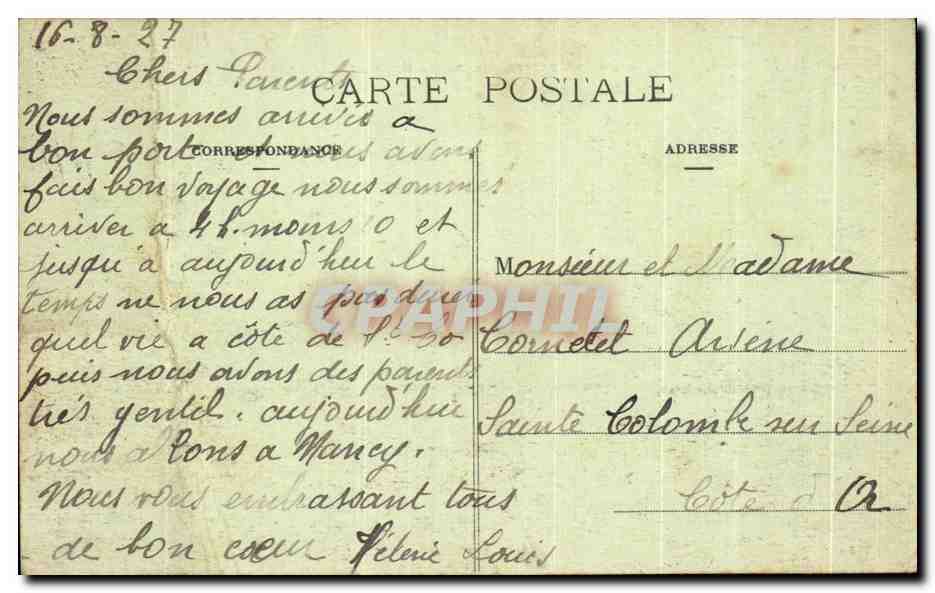 16-8-27
Chers Parents
CARTE POSTALE
Nous sommes arrivés a
bon port nous avons
CORRESPONDANCE
fais bon voyage nous sommes
arriver a 4 h. moins 10 et
jusqu'à aujourd'hui le
temps ne nous as pas durer
quel vie a côté de St Co
puis nous avons des parents
très gentil. aujourd'hui
nous allons a Nancy.
Nous vous embrassant tous
de bon cœur Hélène Louis
ADRESSE
Monsieur et Madame
Cornetet Arsène
Sainte Colombe sur Seine
Côte d'Or
CPAPHIL